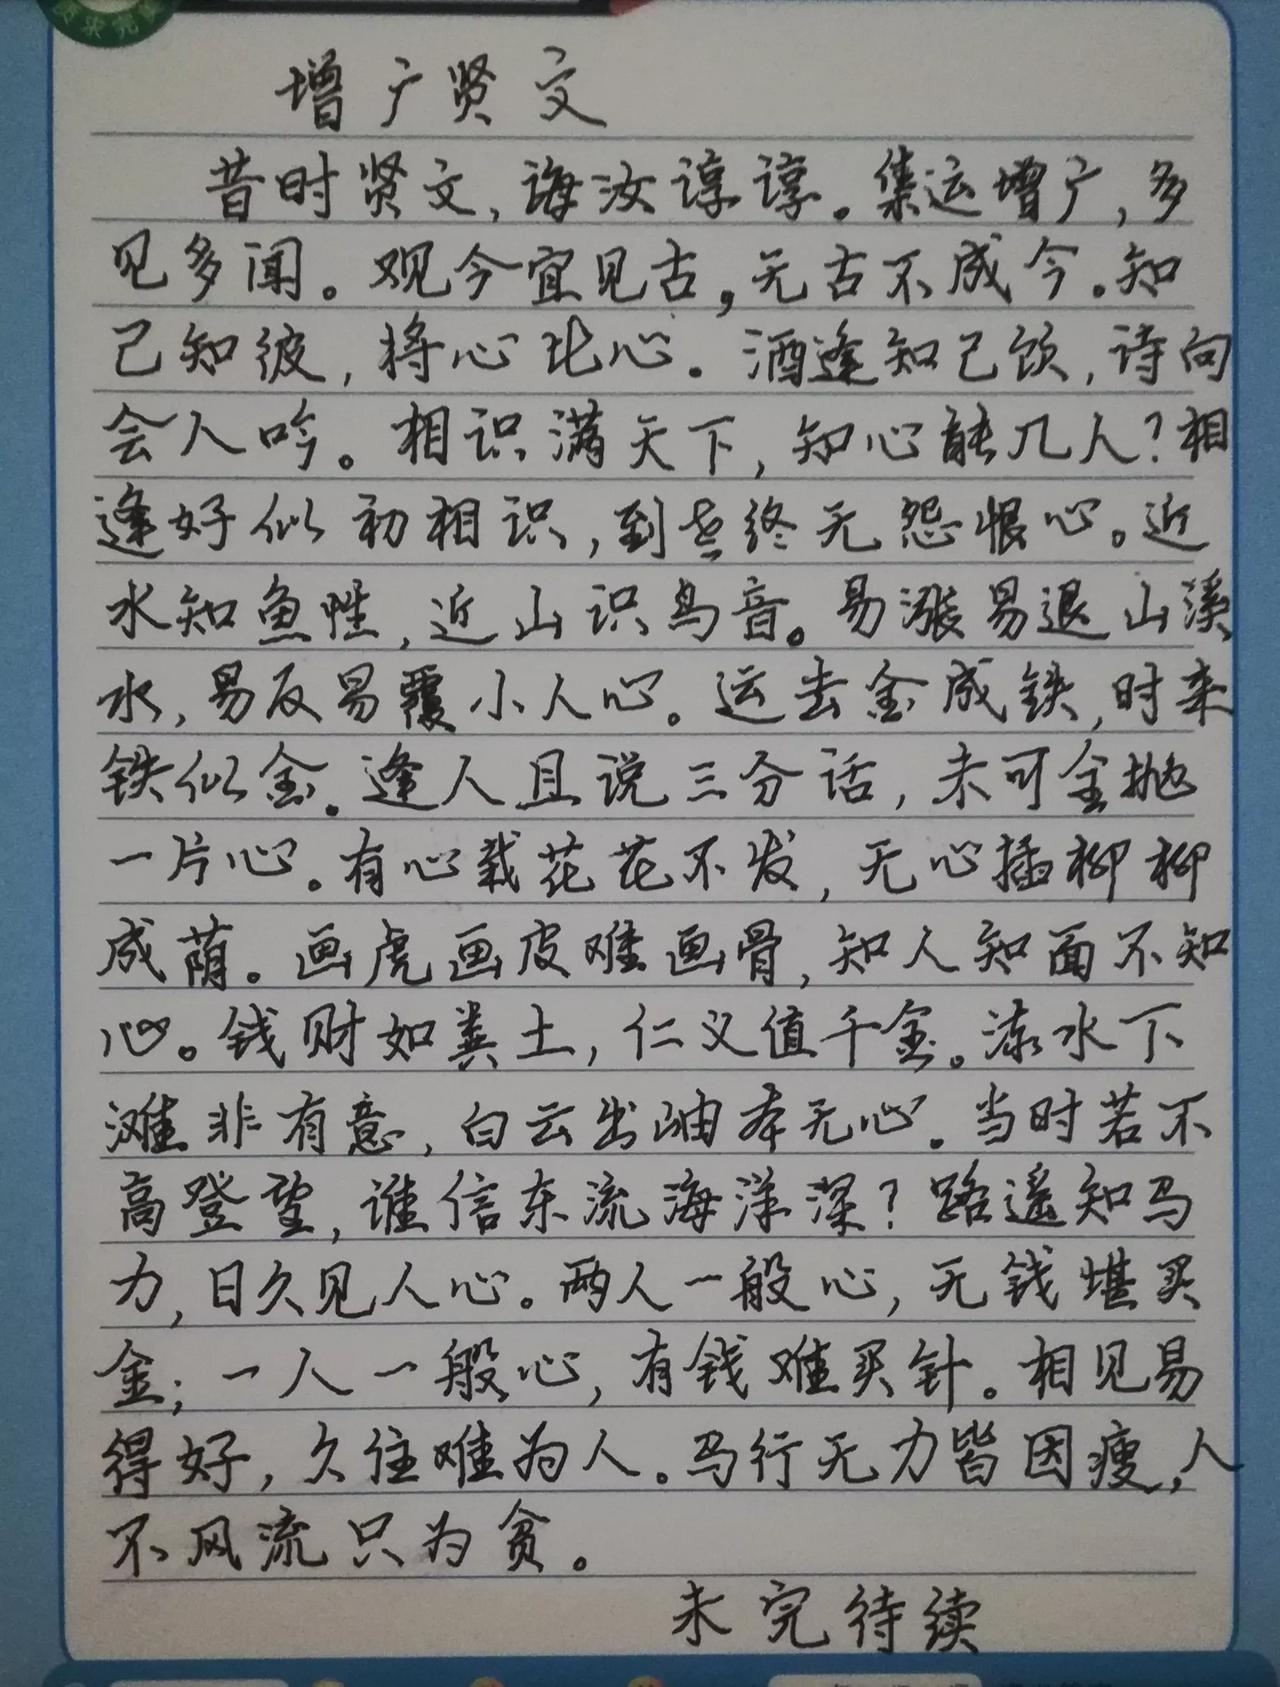 增广贤文
昔时贤文,诲汝谆谆。集运增广,多
见多闻。观今宜见古,无古不成今。知
己知彼,将心比心。酒逢知己饮,诗向
会人吟。相识满天下,知心能几人?相
逢好似初相识,到老终无怨恨心。近
水知鱼性,近山识鸟音。易涨易退山溪
水,易反易覆小人心。运去金成铁,时来
铁似金。逢人且说三分话,未可全抛
一片心。有心栽花花不发,无心插柳柳
成荫。画虎画皮难画骨,知人知面不知
心。钱财如粪土,仁义值千金。流水下
滩非有意,白云出岫本无心。当时若不
高登望,谁信东流海洋深?路遥知马
力,日久见人心。两人一般心,无钱堪买
金;一人一般心,有钱难买针。相见易
得好,久住难为人。马行无力皆因瘦,人
不风流只为贫。
未完待续